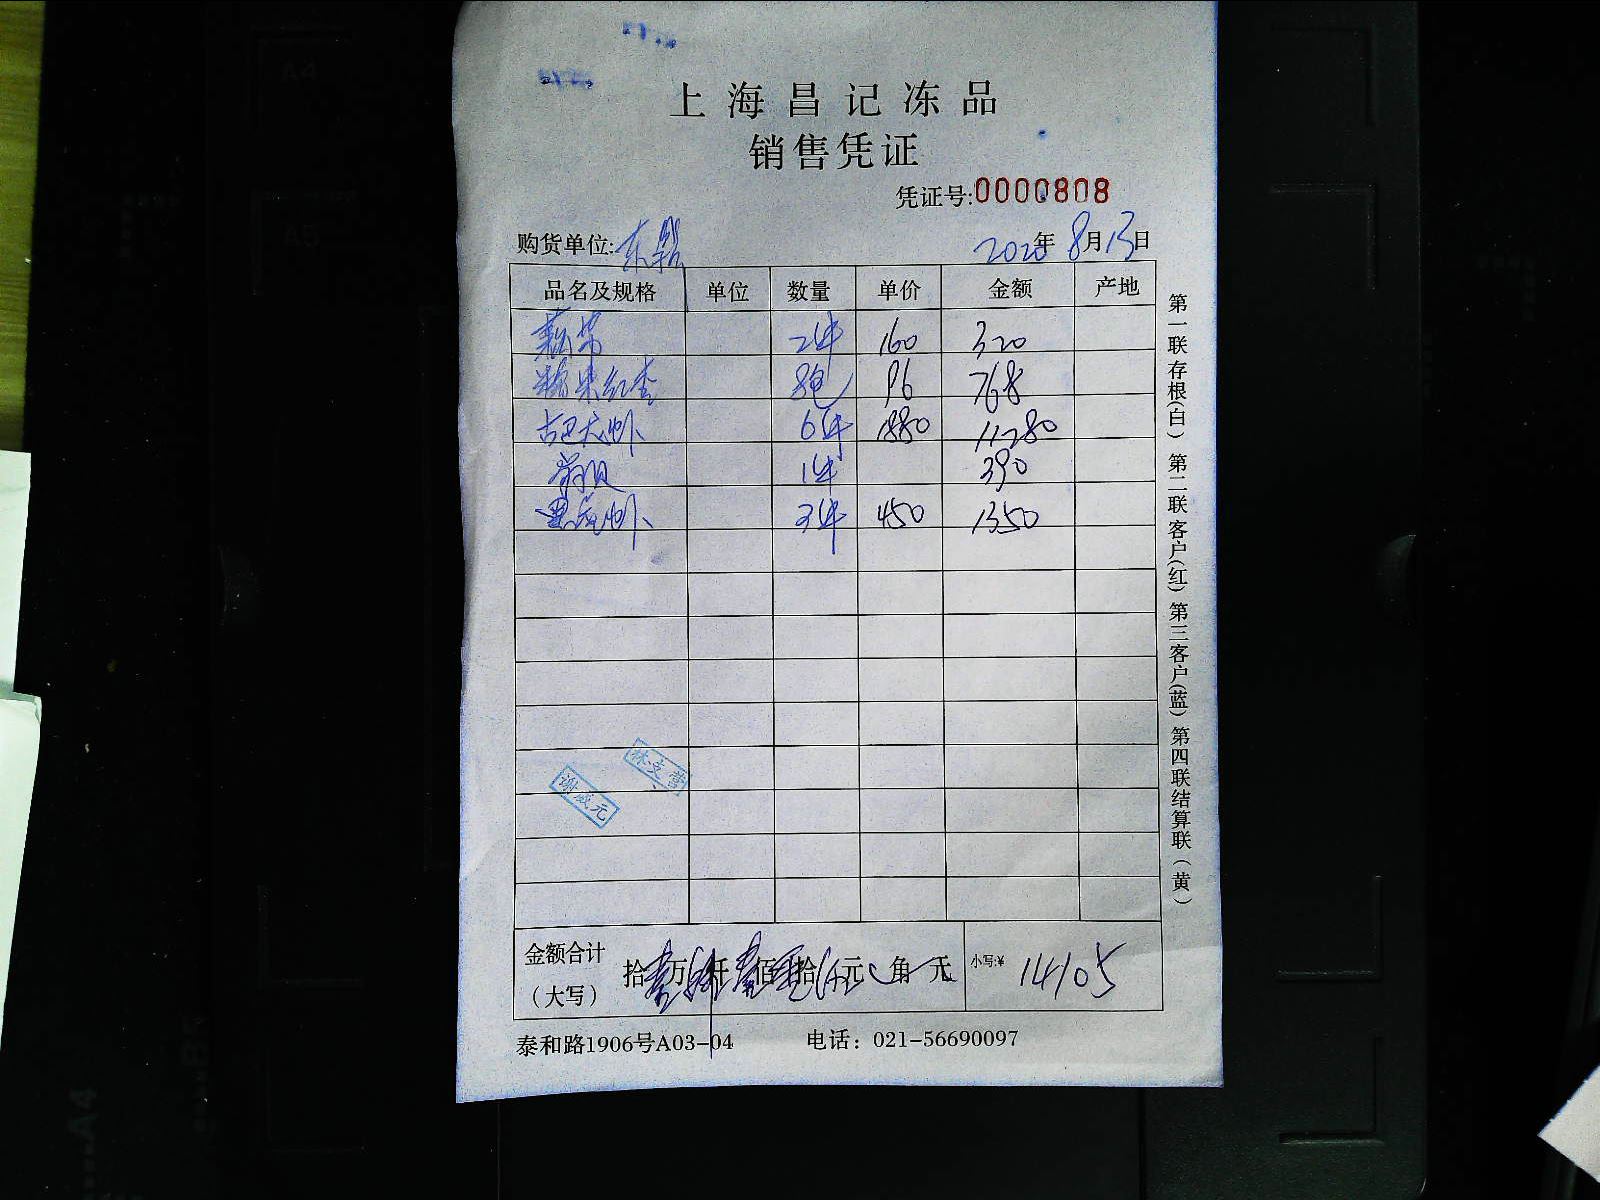 上海昌记冻品
销售凭证
凭证号:0000808
购货单位: 2020年8月13日
品名及规格 单位 数量 单价 金额 产地
2件 160 320
8包 96 768
6件 1880 11280
1件 390
3件 450 1350
林文营
谢成元
金额合计(大写) 拾 万 仟 佰 拾 元 角 小写:¥ 14105
泰和路1906号A03-04 电话：021-56690097
第一联存根(白) 第二联客户(红) 第三客户(蓝) 第四联结算联(黄)